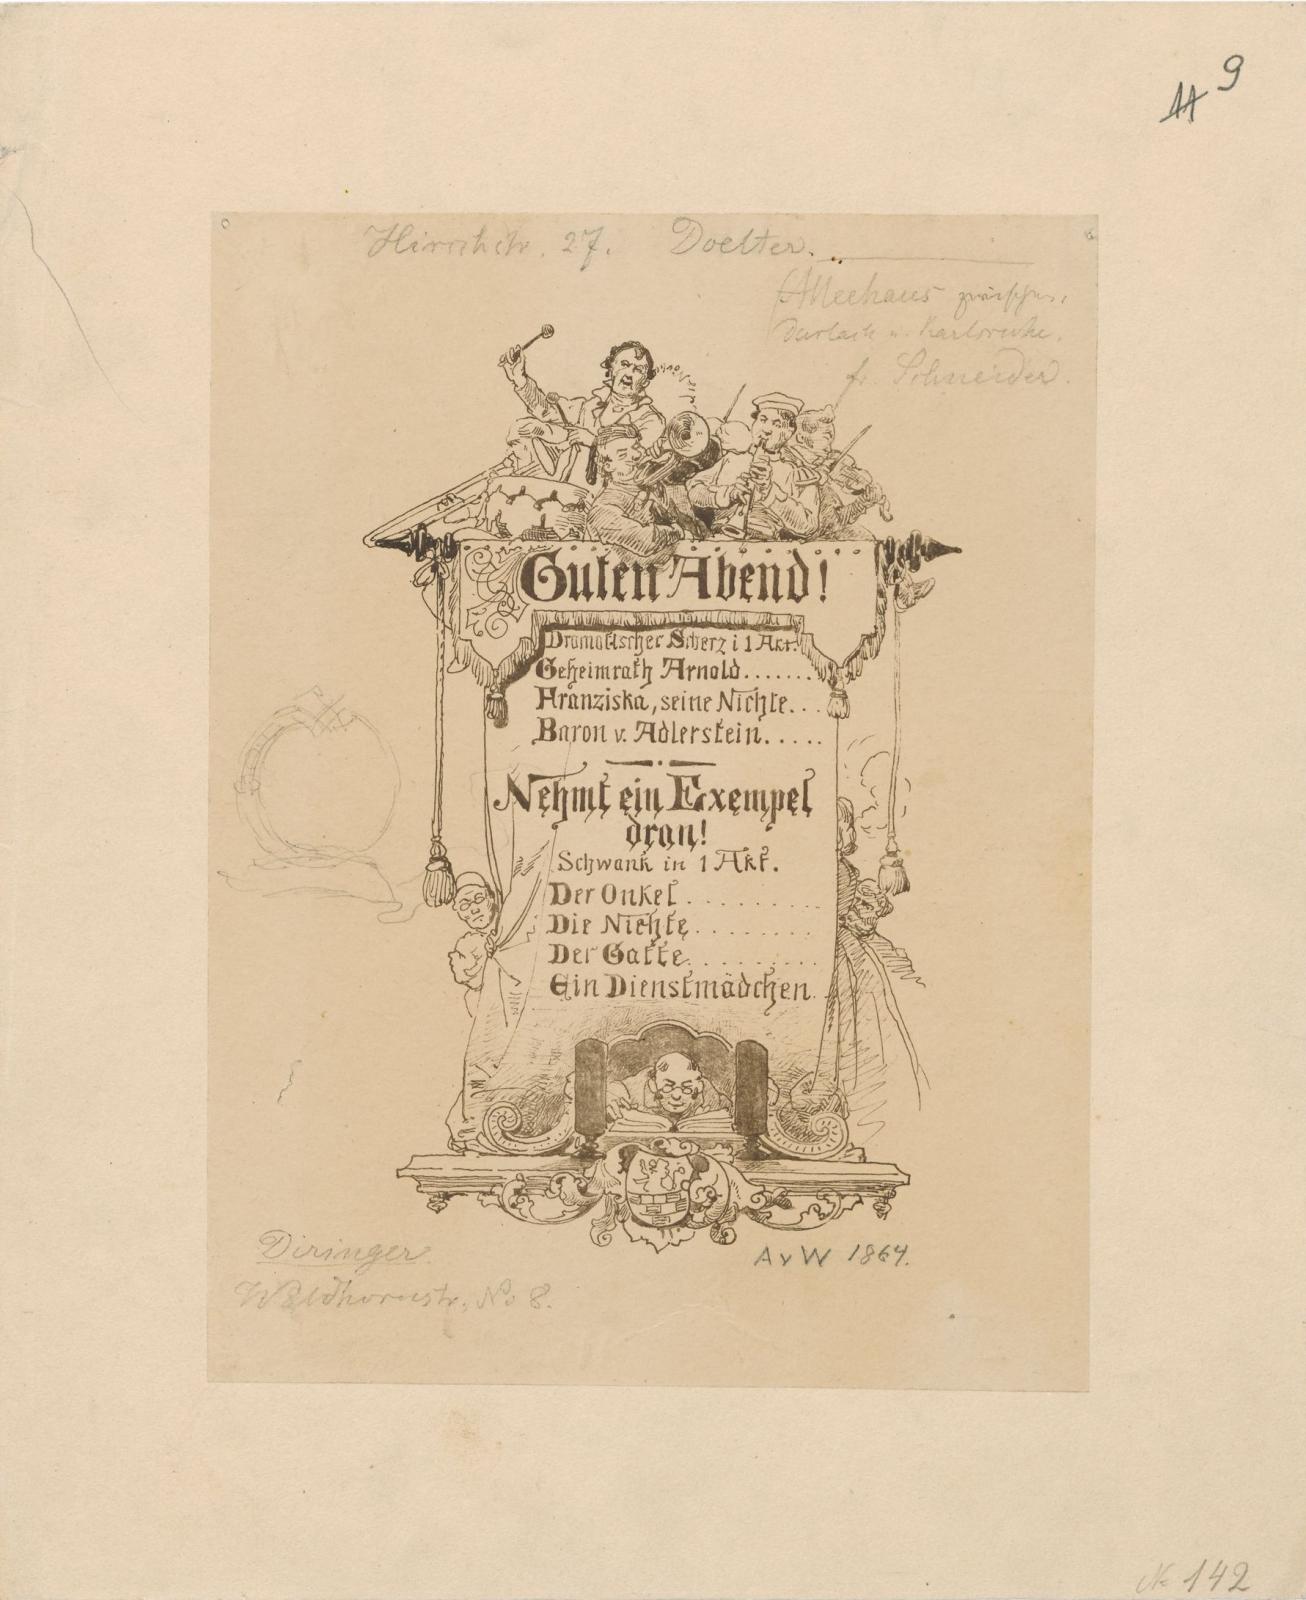 9
Hirschstr. 27. Doelter.
Alleehaus zwischen
Durlach u. Karlsruhe.
fr. Schneider.
Guten Abend!
Dramatischer Scherz i 1 Akt.
Geheimrath Arnold.......
Franziska, seine Nichte...
Baron v. Adlerstein.....
Nehmt ein Exempel
dran!
Schwank in 1 Akt.
Der Onkel..........
Die Nichte.........
Der Gatte..........
Ein Dienstmädchen.
Diringer.
AvW 1864.
Waldhornstr. No 8.
No 142